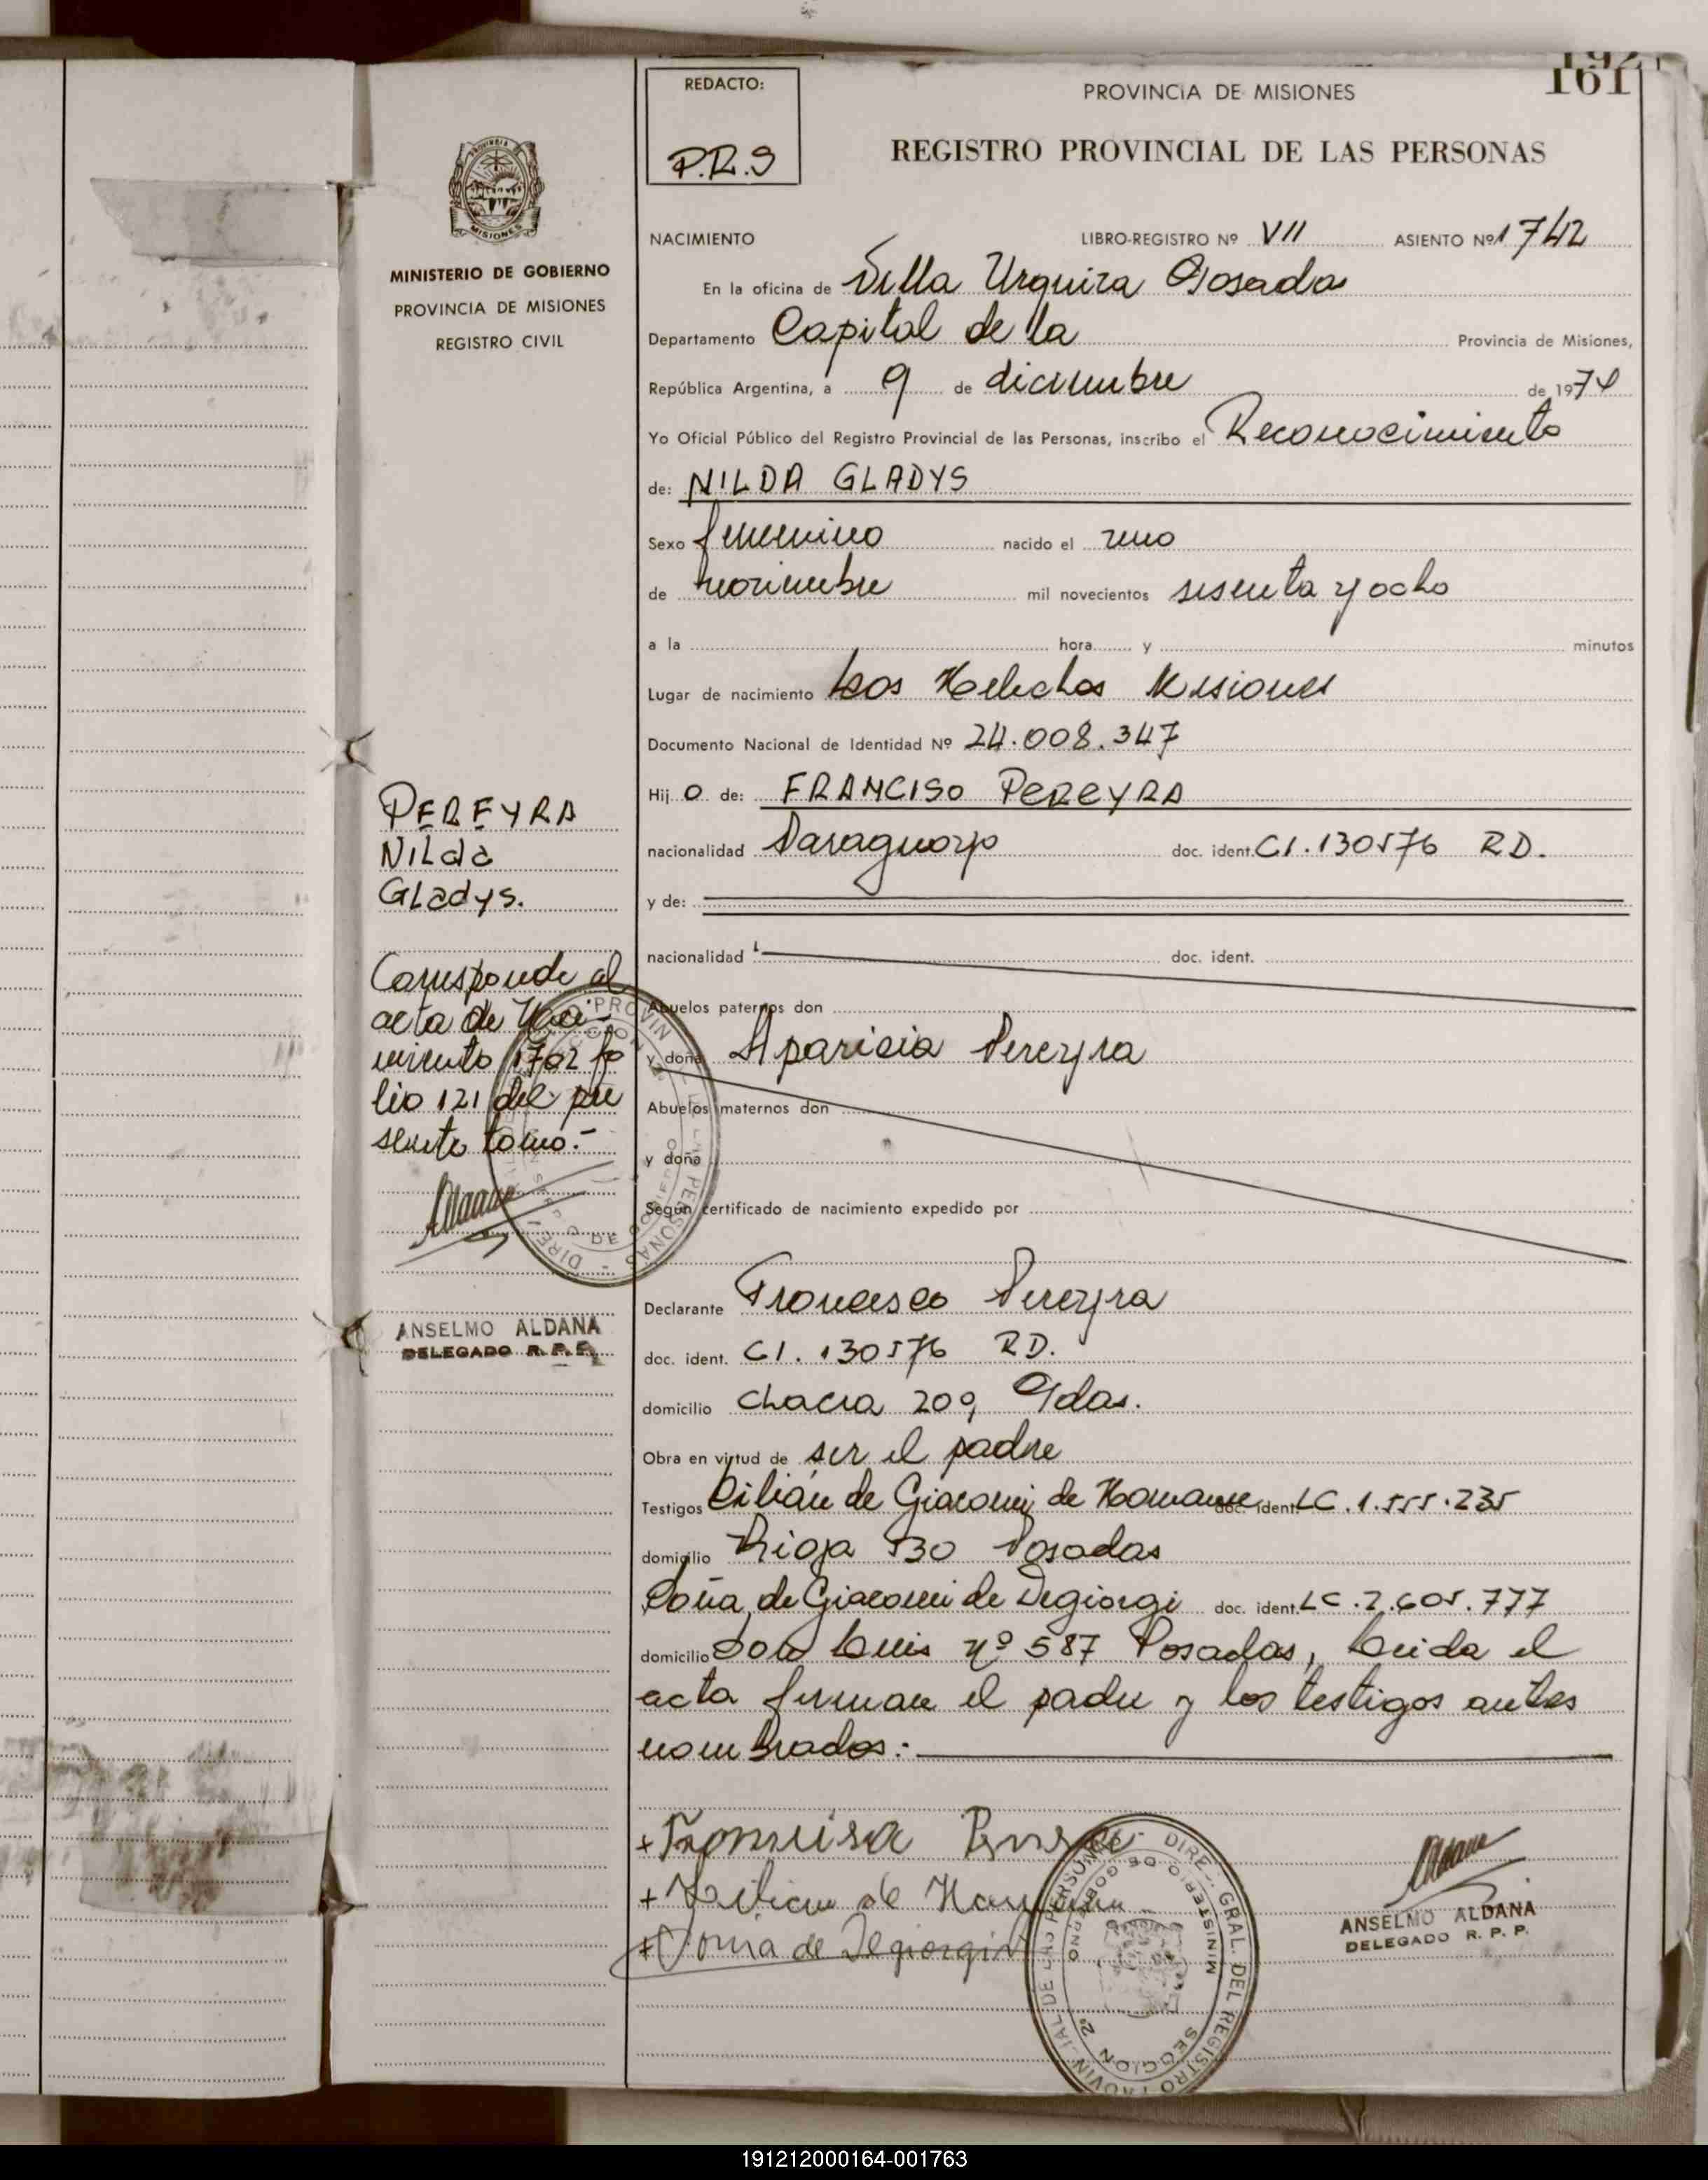 161
REDACTO:
P.R.S
PROVINCIA DE MISIONES
REGISTRO PROVINCIAL DE LAS PERSONAS
MISIONES
MINISTERIO DE GOBIERNO
PROVINCIA DE MISIONES
REGISTRO CIVIL
NACIMIENTO LIBRO-REGISTRO Nº VII ASIENTO Nº 1742
En la oficina de Villa Urquiza Posadas
Departamento Capital de la Provincia de Misiones,
República Argentina, a 9 de diciembre de 1974
Yo Oficial Público del Registro Provincial de las Personas, inscribo el Reconocimiento
de: NILDA GLADYS
Sexo femenino nacido el uno
de noviembre mil novecientos sesenta y ocho
a la hora y minutos
Lugar de nacimiento Los Helechos Misiones
Documento Nacional de Identidad Nº 24.008.347
Hij o de: FRANCISO PEREYRA
nacionalidad Paraguayo doc. ident. CI. 130576 RD.
y de:
nacionalidad doc. ident.
Abuelos paternos don
y doña Aparicia Pereyra
Abuelos maternos don
y doña
Según certificado de nacimiento expedido por
Declarante Francisco Pereyra
doc. ident. CI. 130576 RD.
domicilio chacra 209, Pdas.
Obra en virtud de ser el padre
Testigos Lilián de Giacomi de doc. ident. LC. 1.555.235
domicilio Rioja 530 Posadas
de Giacomi de Degiorgi doc. ident. LC. 2.605.777
domicilio San Luis nº 587 Posadas, Leida el
acta firman el padre y los testigos antes
nombrados:
PEREYRA
Nilda
Gladys.
Corresponde al
acta de Naci-
miento 1702 fo
lio 121 del pre
sente tomo.-
ANSELMO ALDANA
DELEGADO R. P. P.
+
+ Lilian de
+ de Degiorgi
DIREC. GRAL. DEL REGISTRO PROVINCIAL DE LAS PERSONAS
MINISTERIO DE GOBIERNO
2ª SECCION
ANSELMO ALDANA
DELEGADO R. P. P.
191212000164-001763